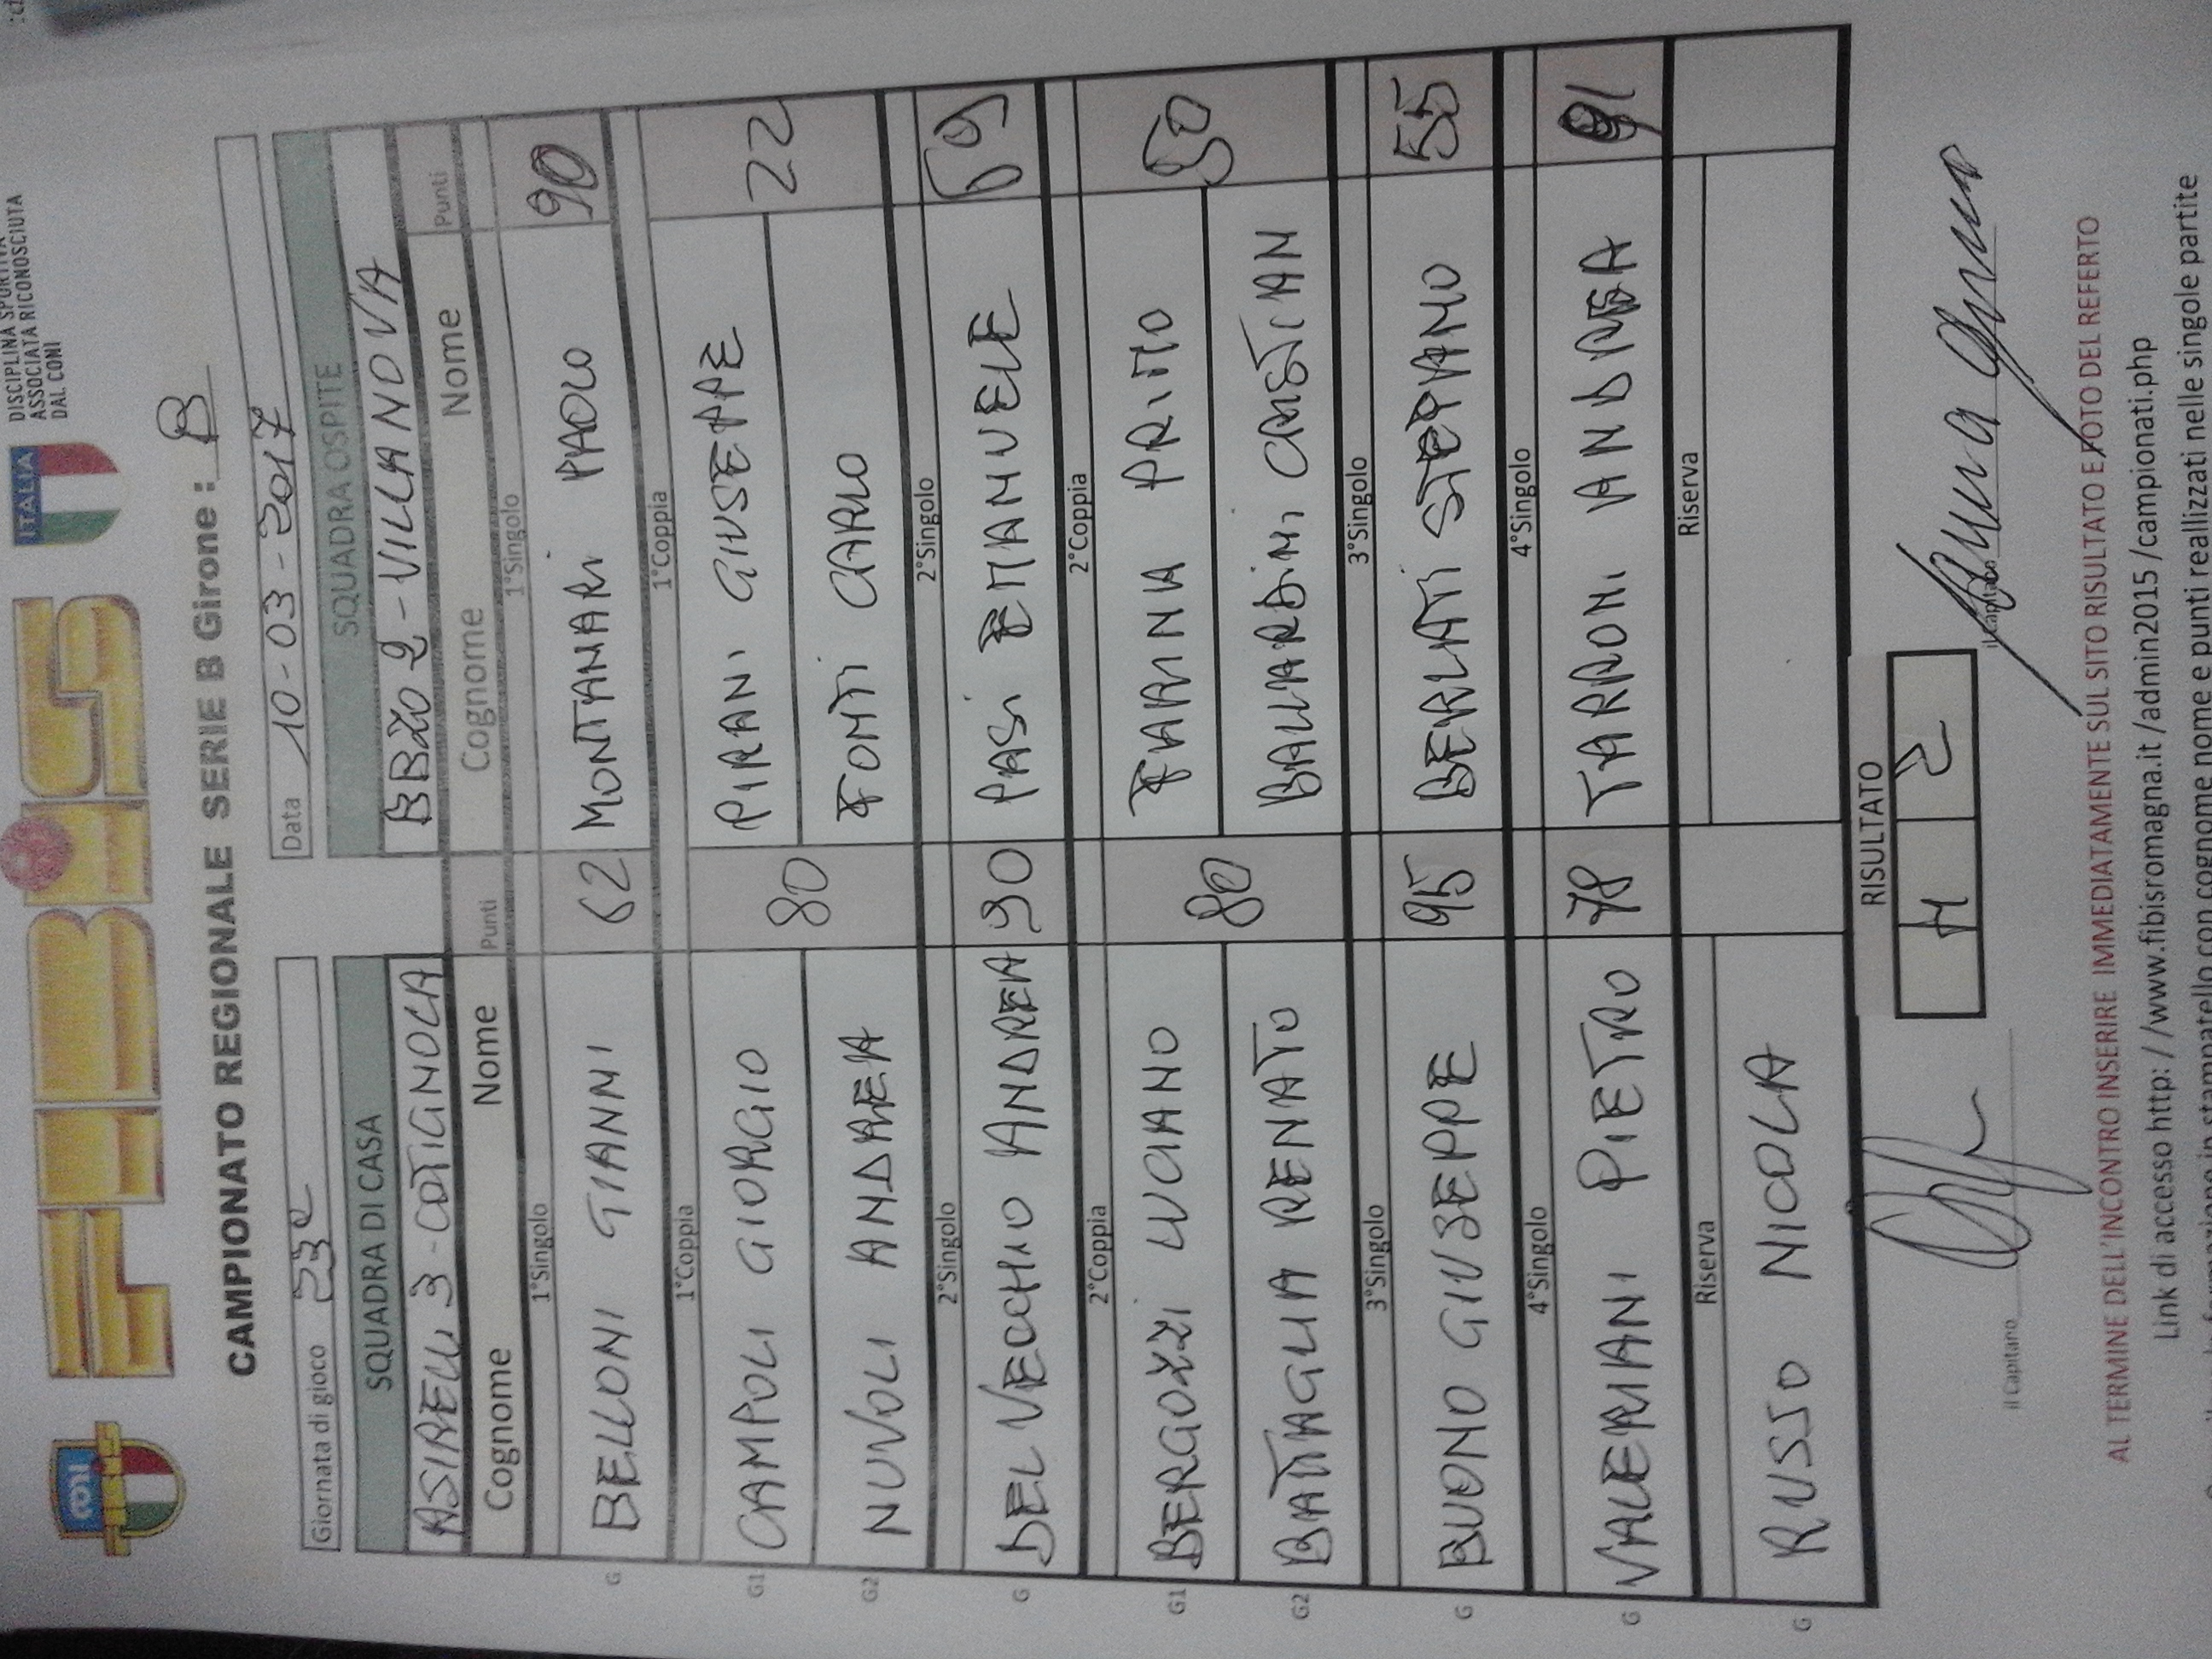 CONI
FIBIS
FIBIS
ITALIA
DISCIPLINA SPORTIVA
ASSOCIATA RICONOSCIUTA
DAL CONI
CAMPIONATO REGIONALE SERIE B Girone : B
Giornata di gioco 23e
Data 10-03-2017
SQUADRA DI CASA
SQUADRA OSPITE
ASIRELLI 3 - COTIGNOLA
BBZO 2 - VILLANOVA
Cognome Nome Punti Cognome Nome Punti
1°Singolo 1°Singolo
G BELLONI GIANNI 62 MONTANARI PAOLO 90
1°Coppia 1°Coppia
G1 CAMPOLI GIORGIO 80 PIRANI GIUSEPPE 22
G2 NUVOLI ANDREA FONTI CARLO
2°Singolo 2°Singolo
G DEL VECCHIO ANDREA 90 PASI EMANUELE 69
2°Coppia 2°Coppia
G1 BERGOZZI LUCIANO 80 FARINA PRIMO 50
G2 BATTAGLIA RENATO BALLARDINI CRISTIAN
3°Singolo 3°Singolo
G BUONO GIUSEPPE 95 BERLATI STEFANO 55
4°Singolo 4°Singolo
G VALERIANI PIETRO 78 TARRONI ANDREA 91
Riserva Riserva
G RUSSO NICOLA
RISULTATO
4 2
il Capitano
il Capitano
AL TERMINE DELL'INCONTRO INSERIRE IMMEDIATAMENTE SUL SITO RISULTATO E FOTO DEL REFERTO
Link di accesso http: / /www.fibisromagna.it /admin2015 /campionati.php
in stampatello con cognome nome e punti reallizzati nelle singole partite